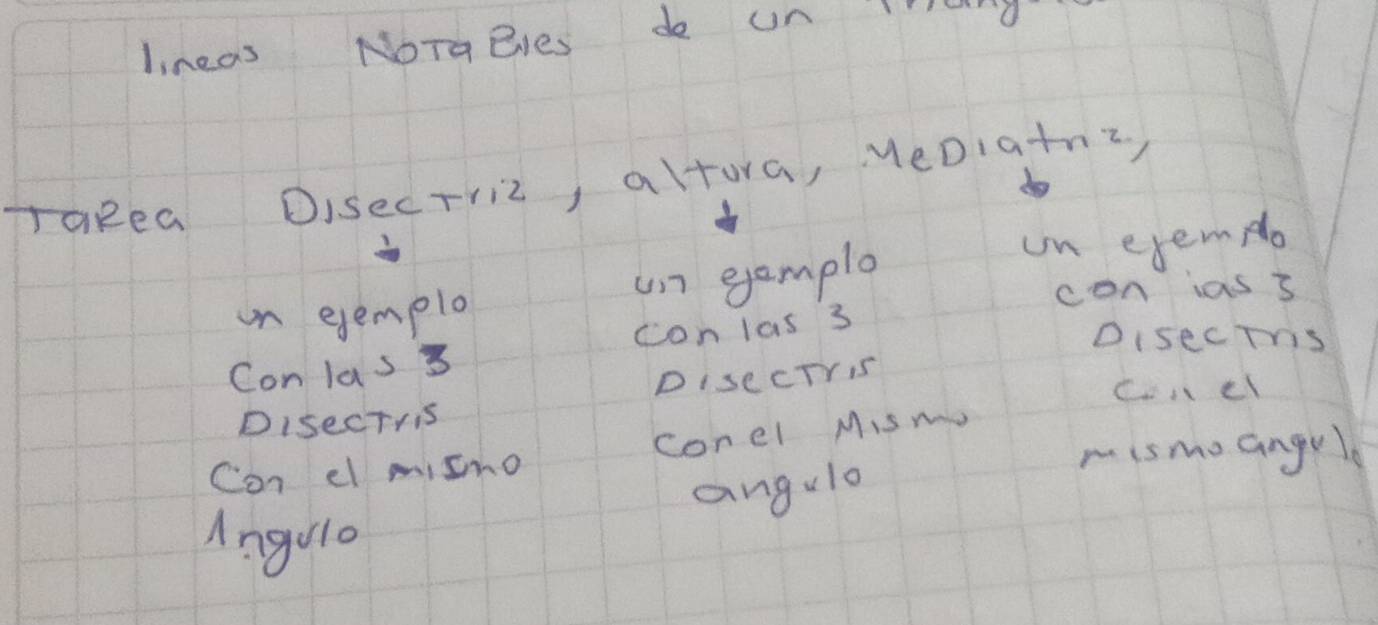 lineas NOTaBles de un
TaRea Disectriz, altura, MeDiatriz,
un ejemplo
con las 3
DisecTris
Con el mismo
Angulo
un ejemplo
con las 3
DisecTris
con el Mismo
angulo
un ejemplo
con las 3
DisecTris
con el
mismo angulo